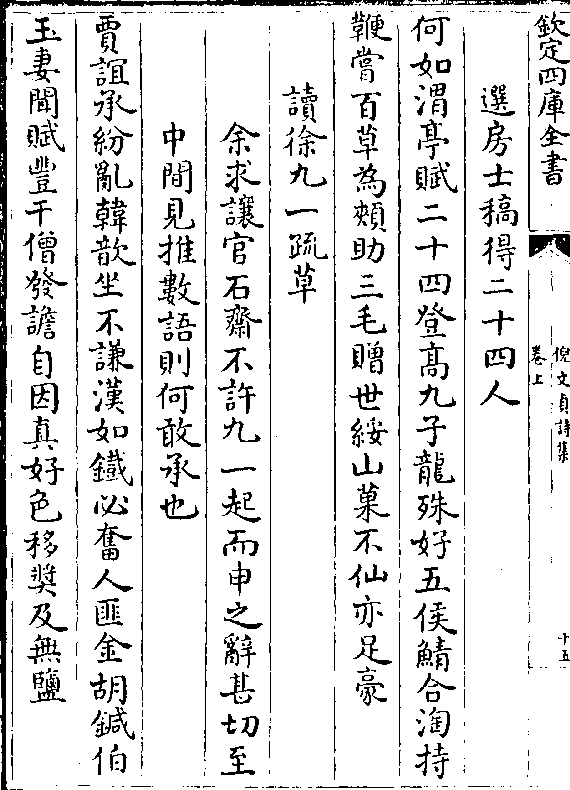 欽定四庫全書
倪文貞詩集
卷上
十五
選房士稿得二十四人
何如渭亭賦二十四登高九子龍殊好五侯鯖合淘持
鞭嘗百草為頰助三毛贈世綏山菓不仙亦足豪
讀徐九一疏草
余求讓官石齋不許九一起而申之辭甚切至
中間見推數語則何敢承也
賈誼承紛亂韓歆坐不謙漢如鐵必奮人匪金胡鍼伯
玉妻聞賦豐干僧發譫自因真好色移奬及無鹽